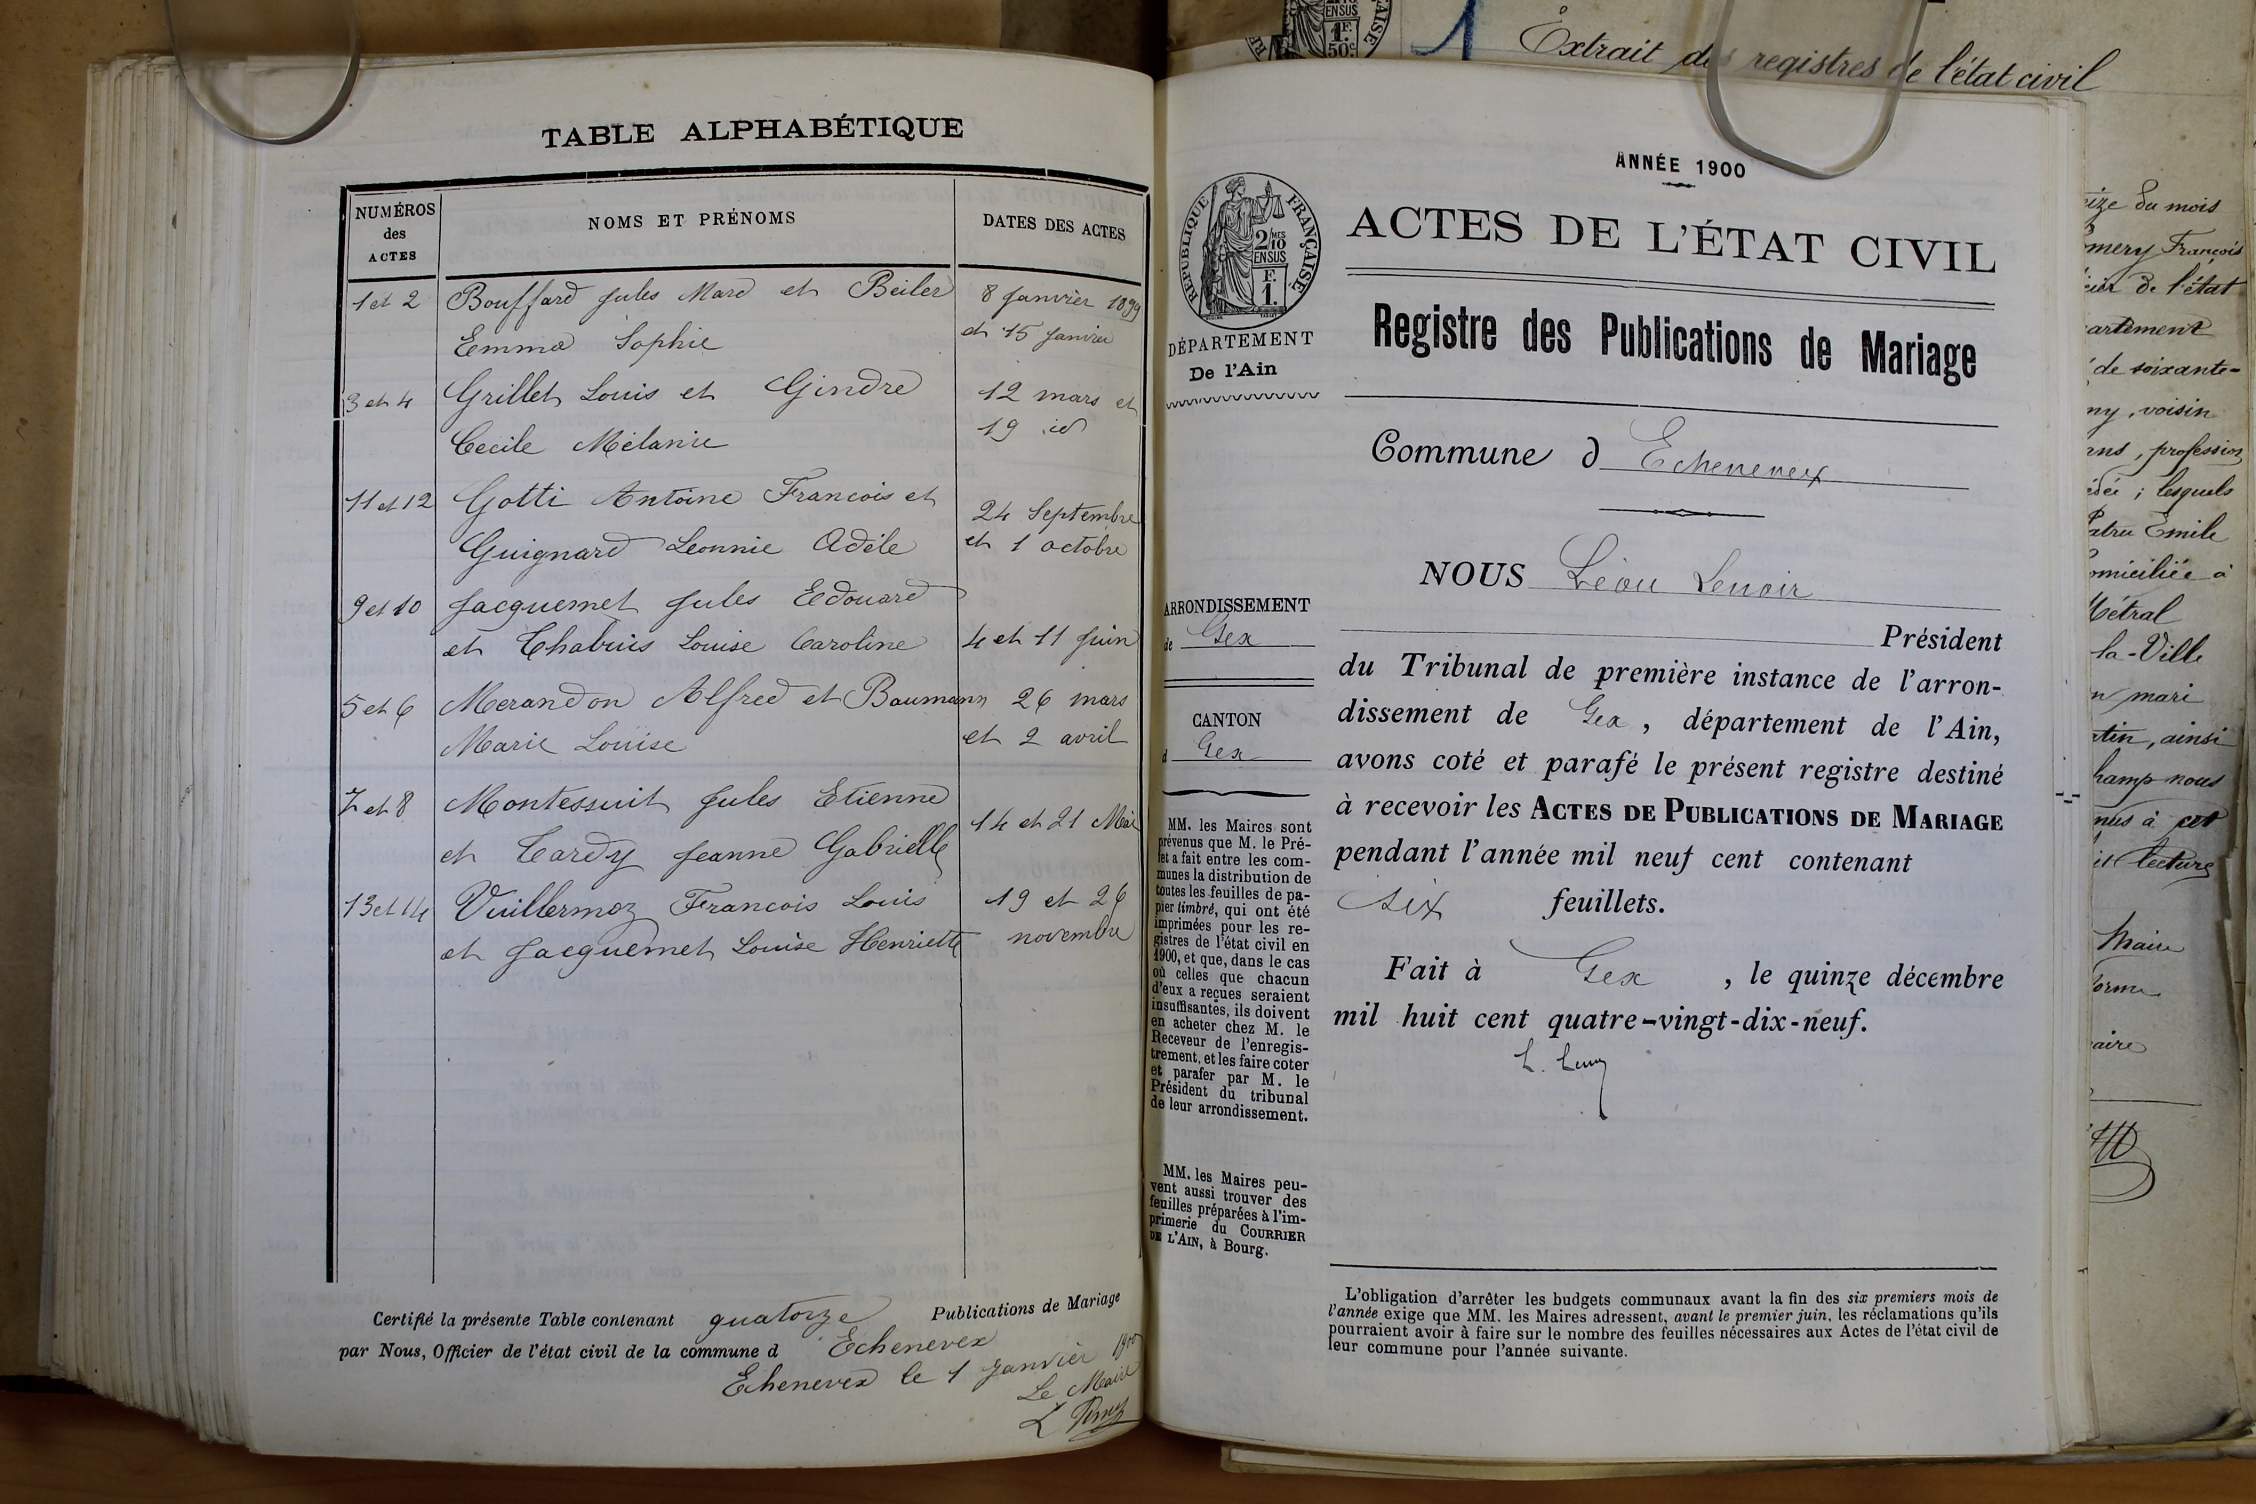 TABLE ALPHABÉTIQUE
NUMÉROS
des
ACTES
NOMS ET PRÉNOMS
DATES DES ACTES
1 et 2 Bouffard Jules Marc et Beiler 8 Janvier 1899
Emma Sophie et 15 Janvier
3 et 4 Grillet Louis et Gindre 12 mars et
Cecile Mélanie 19 id
11 et 12 Gotti Antoine Francois et 24 Septembre
Guignard Leonnie Adèle et 1 octobre
9 et 10 Jacquemet Jules Edouard
et Chabuis Louise Caroline 4 et 11 Juin
5 et 6 Merandon Alfred et Baumann 26 mars
Marie Louise et 2 avril
7 et 8 Montessuit Jules Etienne 14 et 21 Mai
et Tardy Jeanne Gabrielle
13 et 14 Vuillermoz Francois Louis 19 et 26
et Jacquemet Louise Henriette novembre
Certifié la présente Table contenant quatorze Publications de Mariage
par Nous, Officier de l'état civil de la commune d Echenevex
Echenevex le 1 Janvier 1900
Le Maire
1 Extrait des registres de l'état civil
ANNÉE 1900
RÉPUBLIQUE FRANÇAISE
2/10 MES
EN SUS
F.
1.
ACTES DE L'ÉTAT CIVIL
Registre des Publications de Mariage
DÉPARTEMENT
De l'Ain
Commune d Echenevex
NOUS Léon Lenoir
ARRONDISSEMENT
de Gex
CANTON
d Gex
Président
du Tribunal de première instance de l'arron-
dissement de Gex, département de l'Ain,
avons coté et parafé le présent registre destiné
à recevoir les ACTES DE PUBLICATIONS DE MARIAGE
pendant l'année mil neuf cent contenant
six feuillets.
Fait à Gex, le quinze décembre
mil huit cent quatre-vingt-dix-neuf.
MM. les Maires sont
prévenus que M. le Pré-
fet a fait entre les com-
munes la distribution de
toutes les feuilles de pa-
pier timbré, qui ont été
imprimées pour les re-
gistres de l'état civil en
1900, et que, dans le cas
où celles que chacun
d'eux a reçues seraient
insuffisantes, ils doivent
en acheter chez M. le
Receveur de l'enregis-
trement, et les faire coter
et parafer par M. le
Président du tribunal
de leur arrondissement.
MM. les Maires peu-
vent aussi trouver des
feuilles préparées à l'im-
primerie du COURRIER
DE L'AIN, à Bourg.
L'obligation d'arrêter les budgets communaux avant la fin des six premiers mois de
l'année exige que MM. les Maires adressent, avant le premier juin, les réclamations qu'ils
pourraient avoir à faire sur le nombre des feuilles nécessaires aux Actes de l'état civil de
leur commune pour l'année suivante.
du mois
François
de l'état
de soixante-
voisin
profession
lesquels
Emile
Métral
la-Ville
mari
ainsi
nous
à cet
lecture
Maire